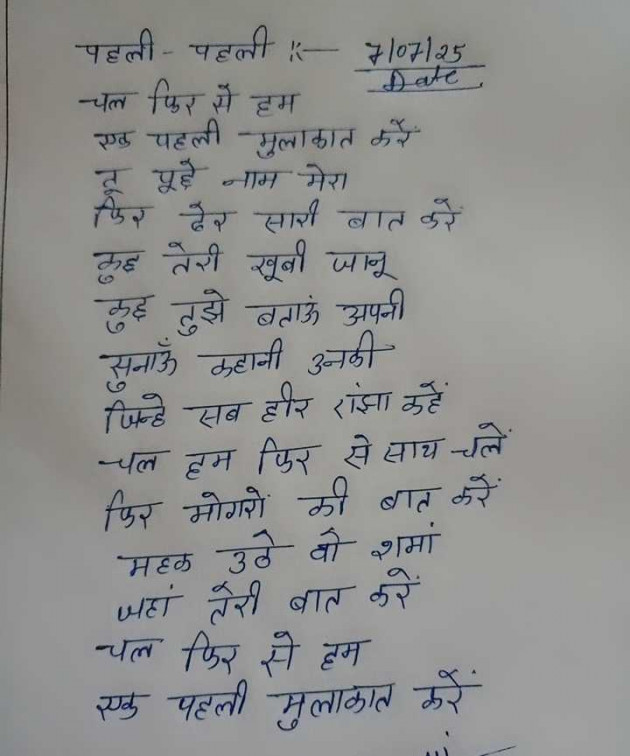 पहली - पहली :- 7/07/25
Date
चल फिर से हम
एक पहली मुलाकात करें
तू पूछे नाम मेरा
फिर ढेर सारी बात करें
कुछ तेरी खूबी जानू
कुछ तुझे बताऊं अपनी
सुनाऊँ कहानी उनकी
जिन्हे सब हीर रांझा कहें
चल हम फिर से साथ चलें
फिर मोगरों की बात करें
महक उठे वो शमां
जहां तेरी बात करें
चल फिर से हम
एक पहली मुलाकात करें